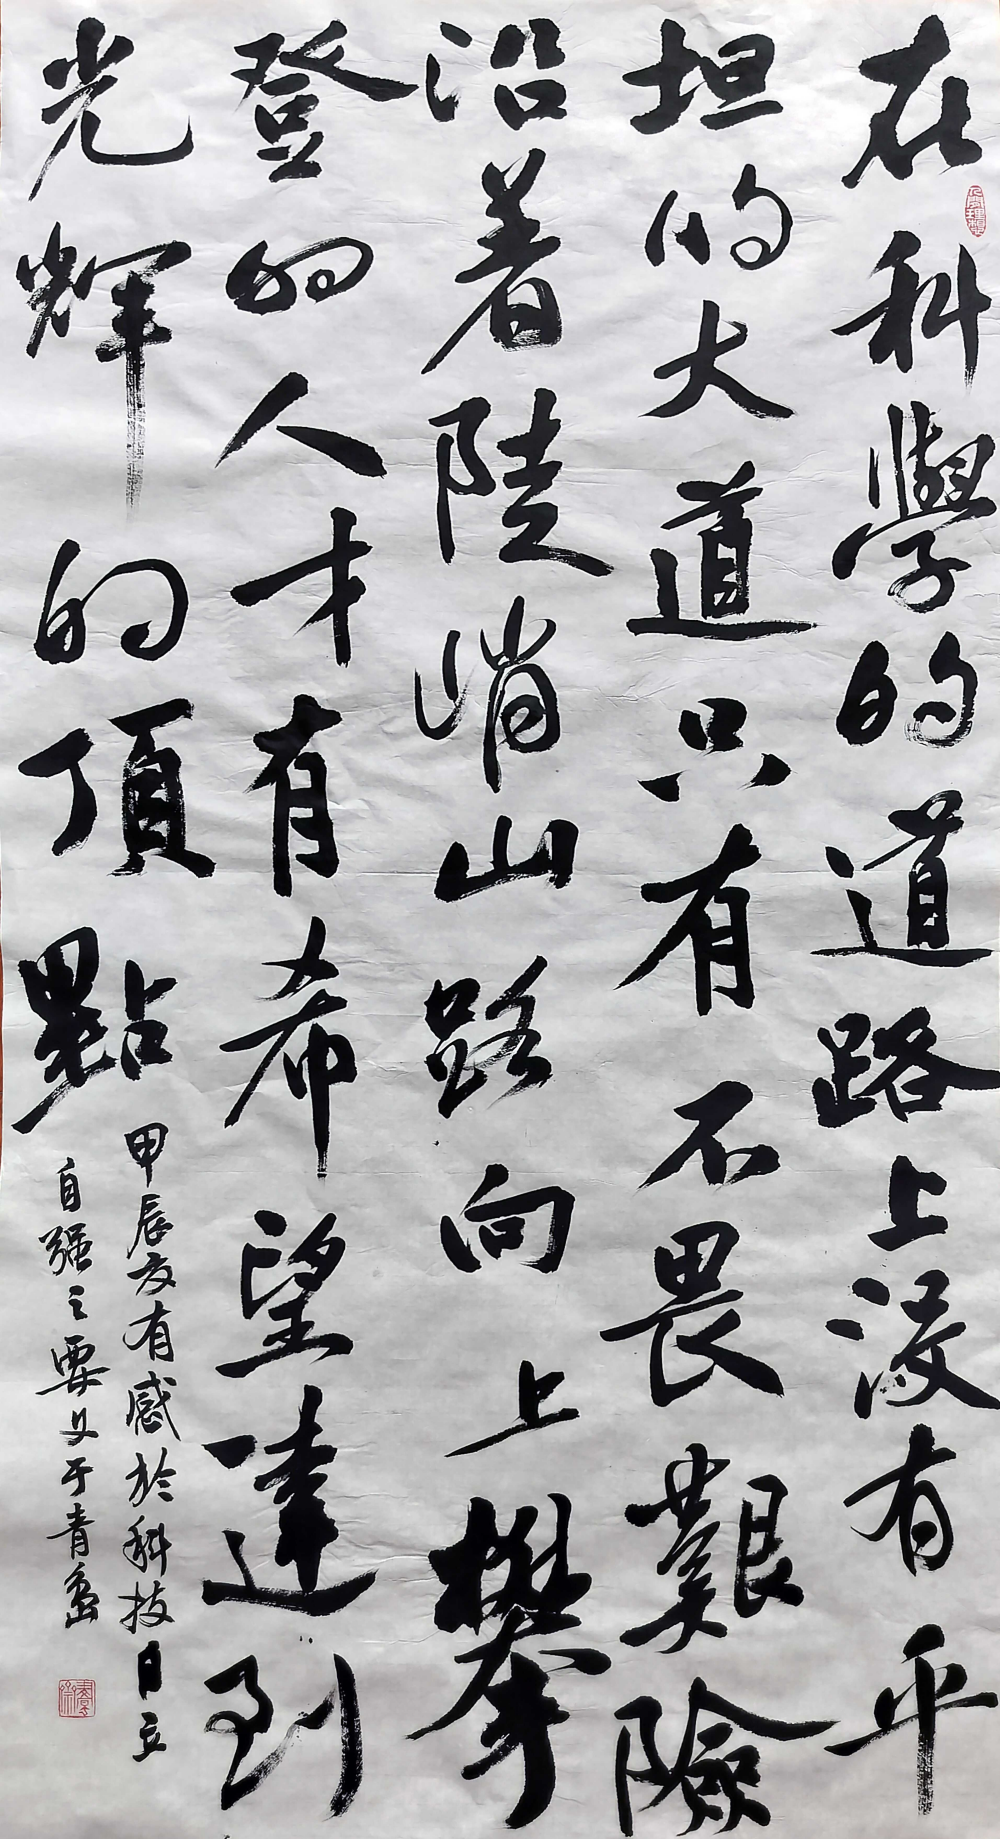 在科學的道路上沒有平
坦的大道只有不畏艱險
沿着陡峭山路向上攀
登的人才有希望達到
光輝的頂點
甲辰友有感於科技自立
自强之要义于青島